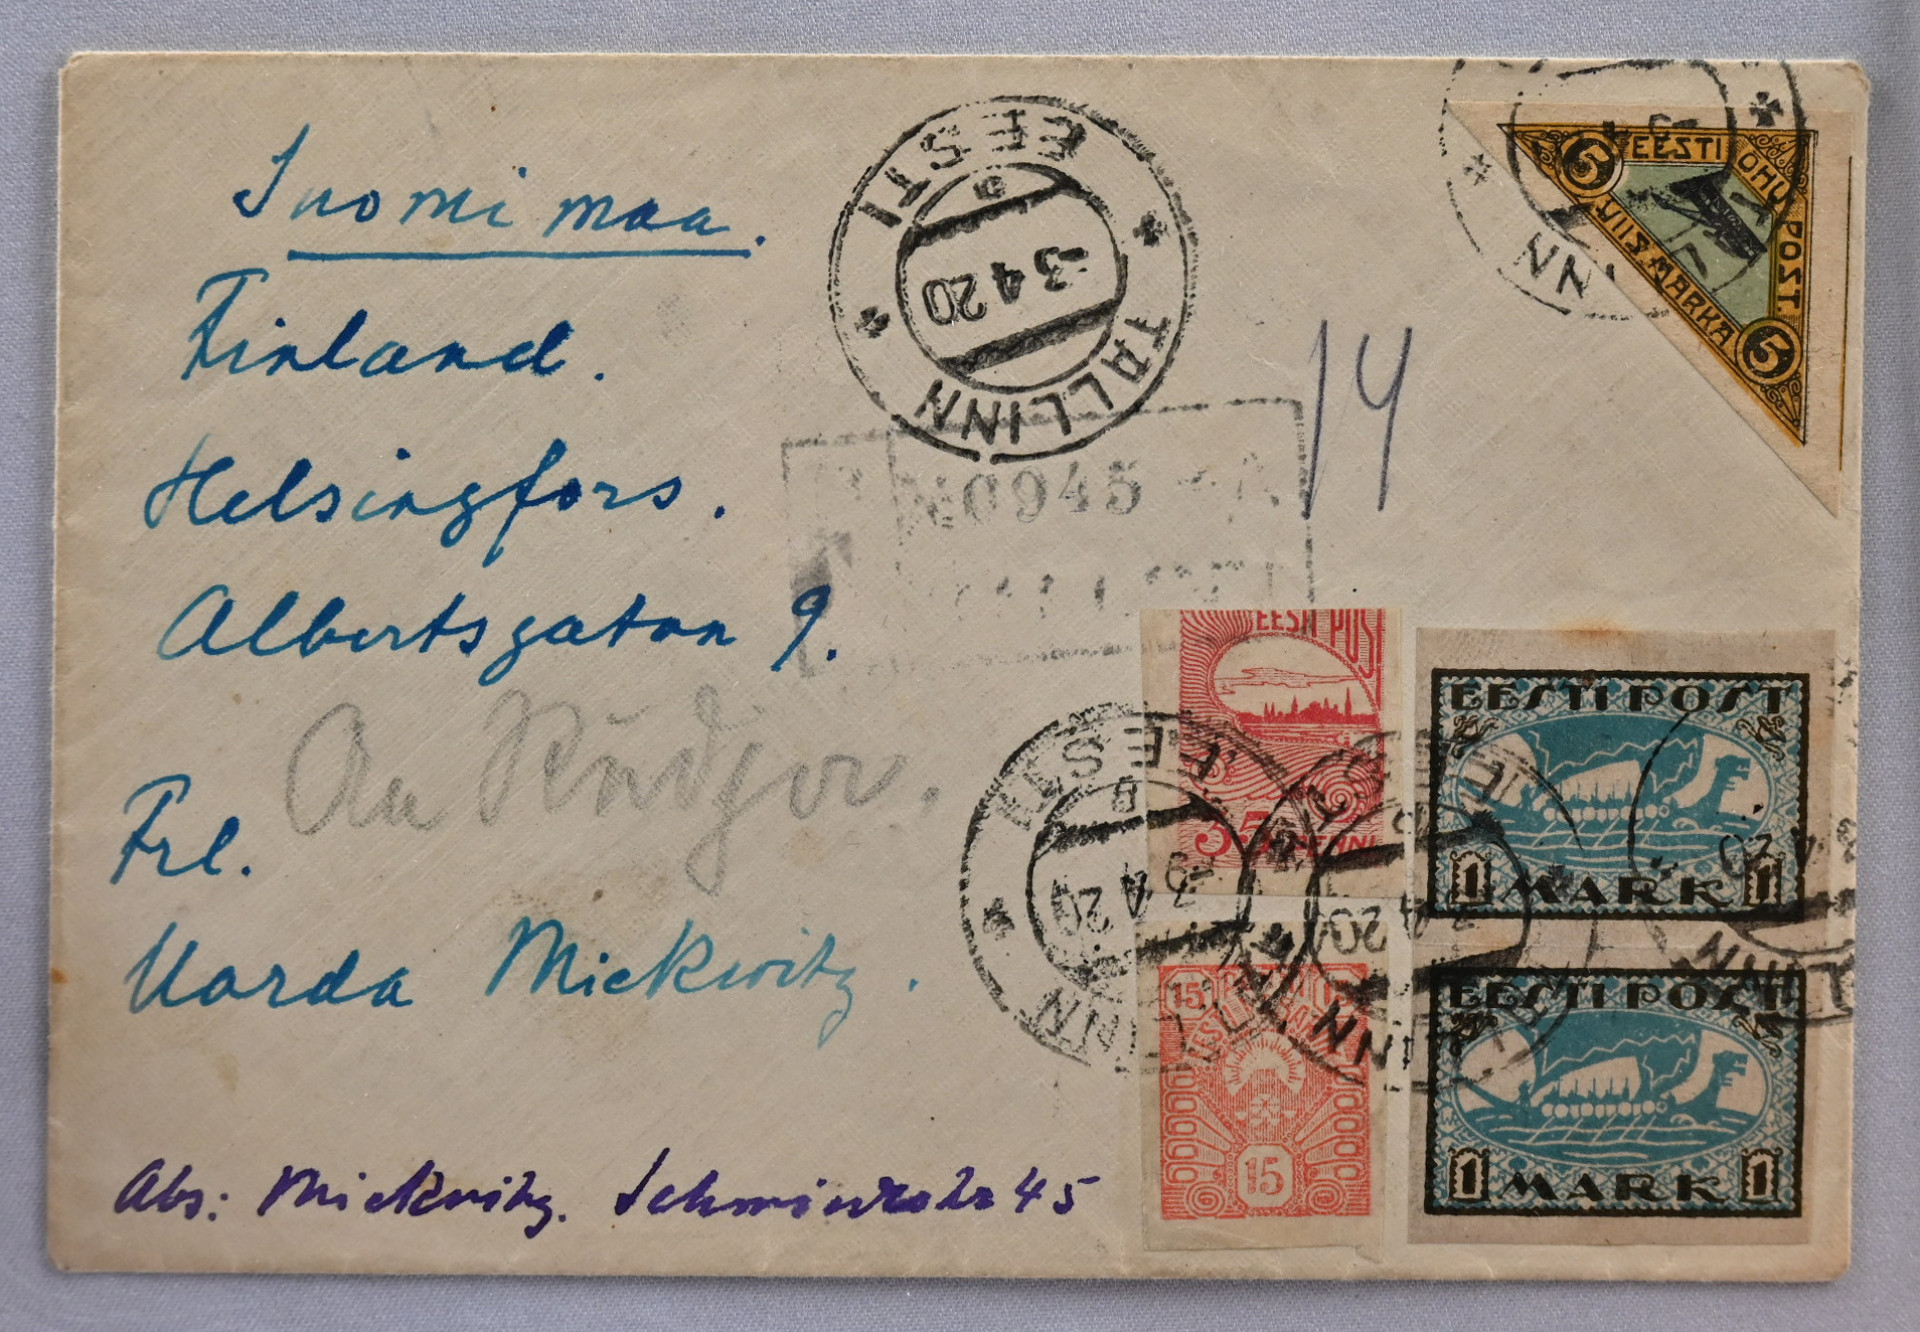 Suomi maa.
Finland.
Helsingfors.
Albertsgatan 9.
An
Frl.
Mickwitz.
Abs: Mickwitz. 45
EESTI
-3 4 20
TALLINN
No 945
14
EESTI ÕHU POST.
VIIS MARKA
5
5
INN
EESTI POST
35 PENNI
EESTI
B
-3 4 20
TALLINN
15 15
EESTI VABARIIK
15
EESTI POST
1 MARK 1
EESTI POST
1 MARK 1
4 20
LINN